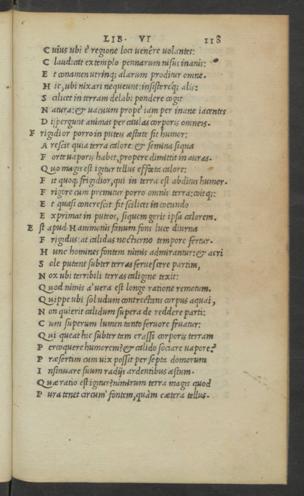 LIB. VI 118
Cuius ubi è regione loci venêre volantes:
Claudicat extemplo pennarum nisus inanis:
Et conamen utrinq; alarum proditur omne.
Hic, ubi nixari nequeunt: insistereq; alis:
Scilicet in terram delabi pondere cogit
Natura: & vacuum prope iam per inane iacentes
Dispergunt animas per caulas corporis omneis.
Frigidior porro in puteis æstate fit humor:
Arescit quia terra calore: & semina siqua
Forte vaporis habet, propere dimittit in auras.
Quo magis est igitur tellus effœta calore:
Fit quoq; frigidior, qui in terra est abditus humor.
Frigore cum premitur porro omnis terra: coitq;:
Et quasi concrescit: fit scilicet in coeundo
Exprimat in puteos, siquem gerit ipsa calorem.
Est apud Hammonis fanum fons luce diurna
Frigidus: at calidus nocturno tempore fertur.
Hunc homines fontem nimis admirantur: & acri
Sole putent subter terras feruescere partim,
Nox ubi terribili terras caligine texit:
Quod nimis à vera est longe ratione remotum.
Quippe ubi sol nudum contrectans corpus aquai,
Non quierit calidum supera de reddere parti:
Cum superum lumen tanto feruore fruatur:
Qui queat hic subter tam crasso corpore terram
Percoquere humorem? & calido sociare vapore?
Præsertim cum vix possit per septa domorum
Insinuare suum radijs ardentibus æstum.
Quæ ratio est igitur? nimirum terra magis quod
Rara tenet circum fontem, quàm cætera tellus.